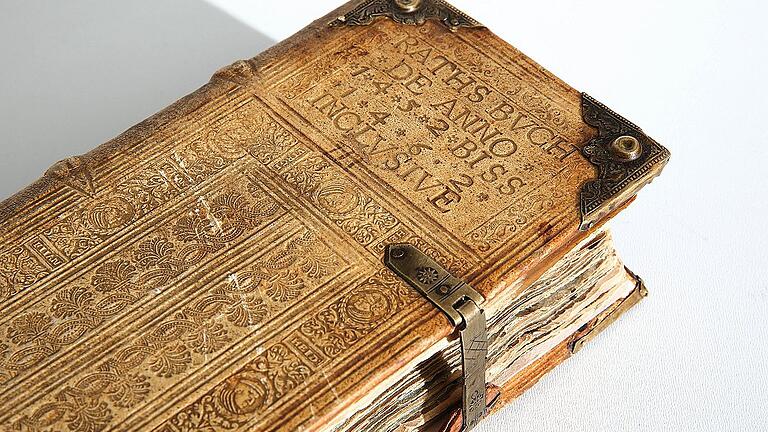 RATHS BVCH
DE ANNO
1·4·3·2·BISS
1·4·6·2·
INCLVSIVE